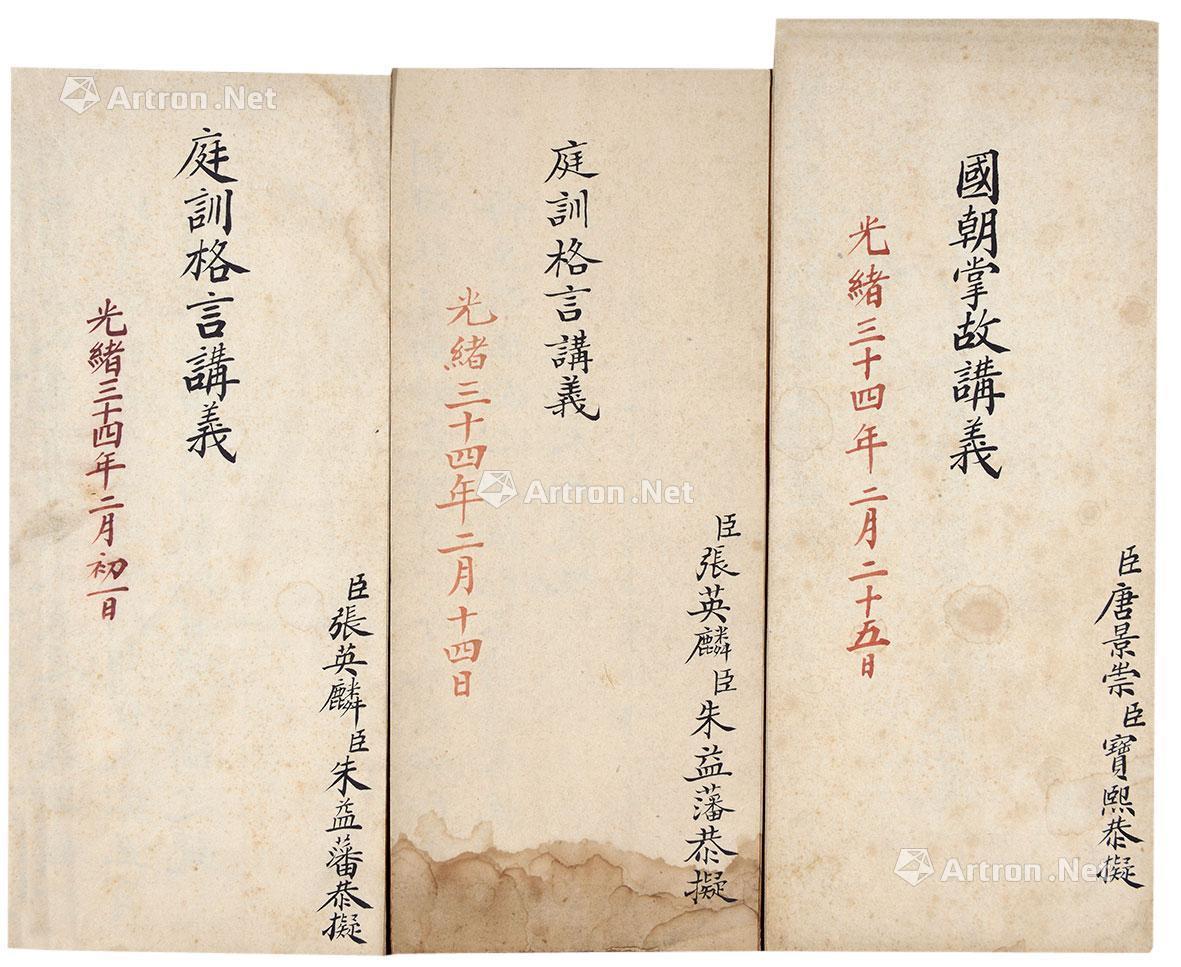 國朝掌故講義
光緒三十四年二月二十五日
臣唐景崇臣寶熙恭擬
庭訓格言講義
光緒三十四年二月十四日
臣張英麟臣朱益藩恭擬
庭訓格言講義
光緒三十四年二月初一日
臣張英麟臣朱益藩恭擬
Artron.Net
Artron.Net
Artron.Net